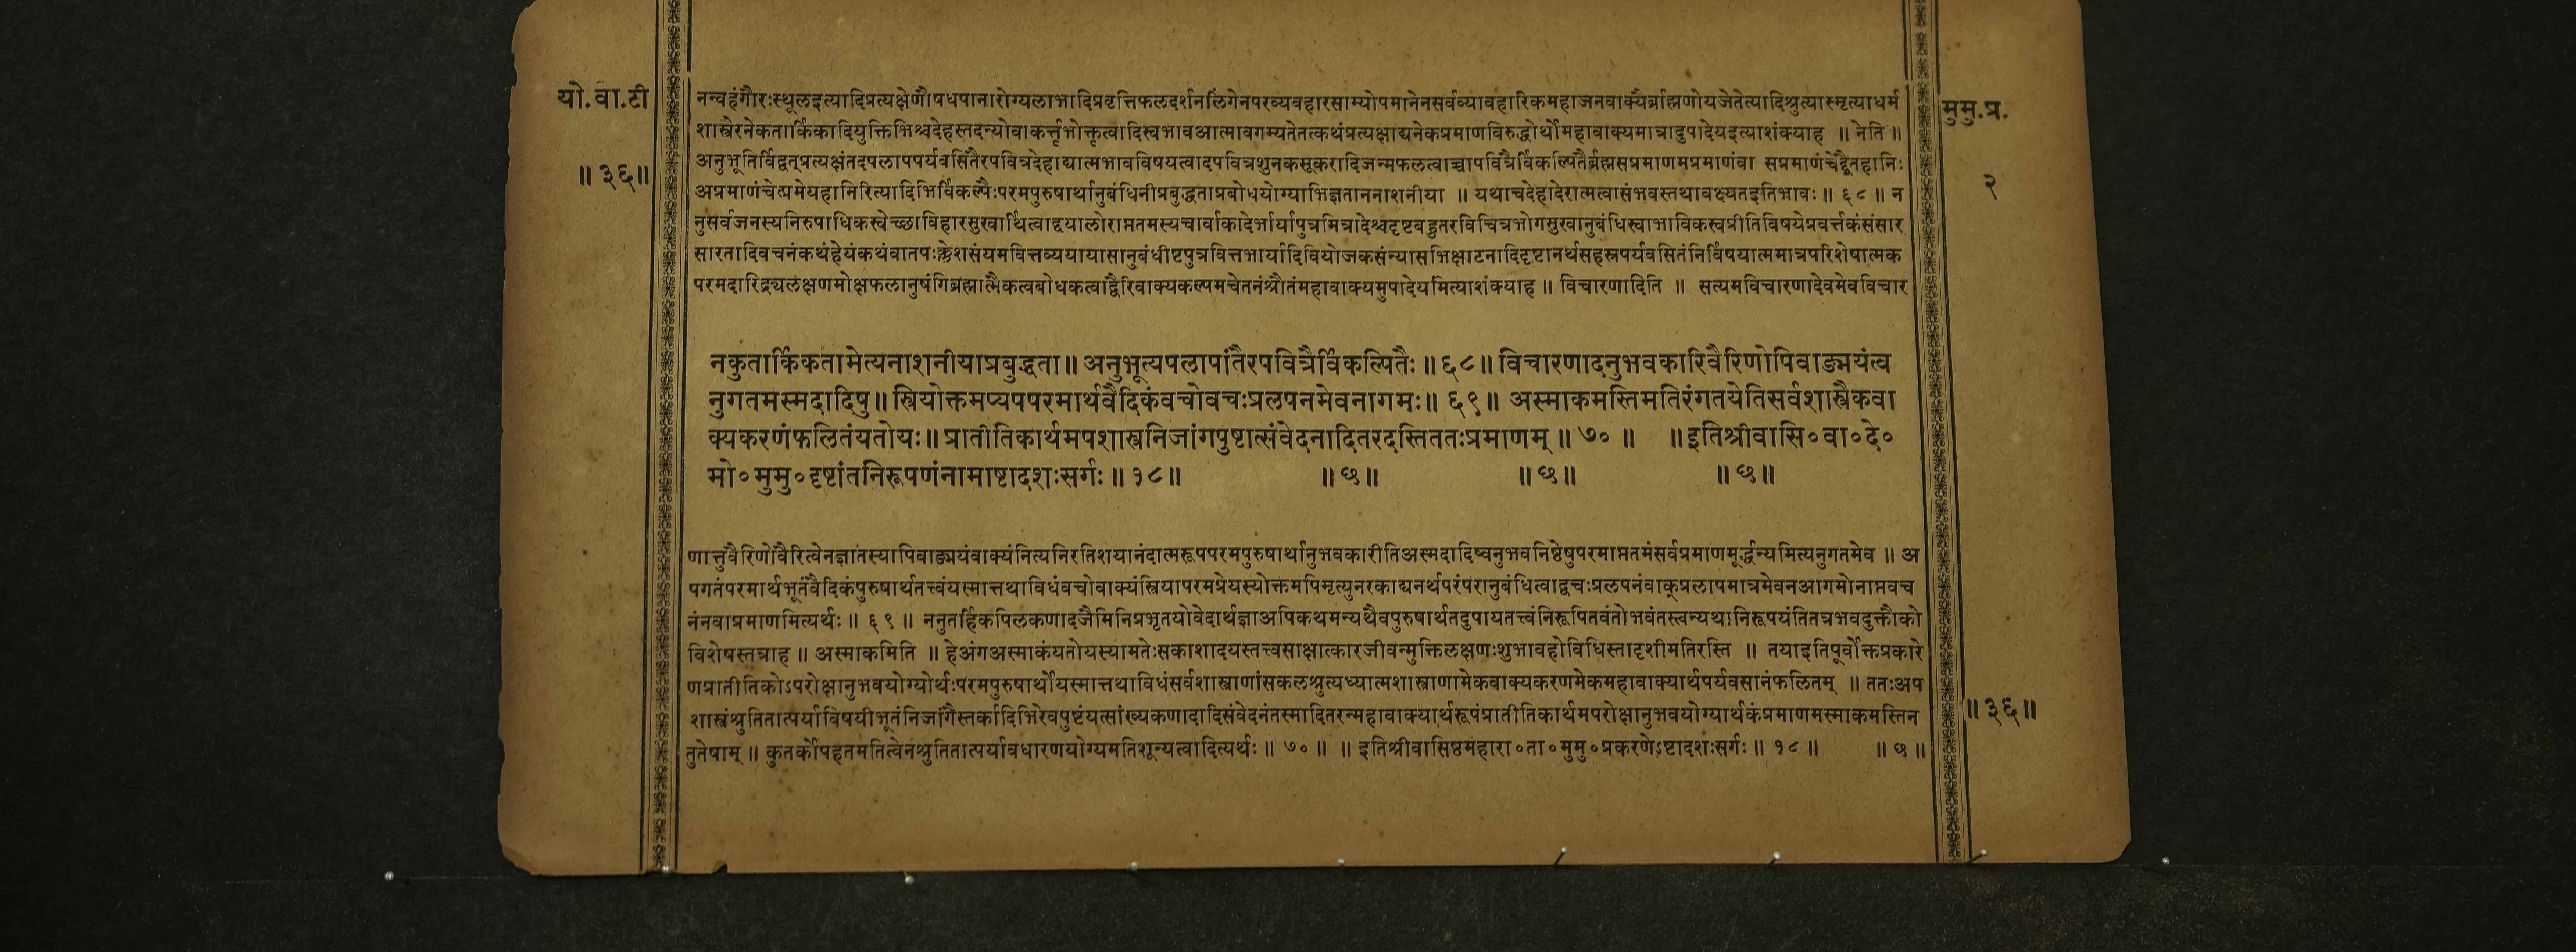 यो.वा.टी
॥ ३६॥
मुमु.प्र.
२
नन्वहंगौरःस्थूलइत्यादिप्रत्यक्षेणौषधपानारोग्यलाभादिप्रवृत्तिफलदर्शनलिंगेनपरव्यवहारसाम्योपमानेनसर्वव्यावहारिकमहाजनवाक्यैर्ब्राह्मणोयजेतेत्यादिश्रुत्यास्मृत्याधर्म
शास्त्रेरनेकतार्किकादियुक्तिभिश्चदेहस्तदन्योवाकर्त्तृभोक्तृत्वादिस्वभावआत्मावगम्यतेतत्कथंप्रत्यक्षाद्यनेकप्रमाणविरुद्धोर्थोमहावाक्यमात्रादुपादेयइत्याशंक्याह ॥ नेति ॥
अनुभूतिर्विद्वत्प्रत्यक्षंतदपलापपर्यवसितैरपवित्रदेहाद्यात्मभावविषयत्वादपवित्रशुनकसूकरादिजन्मफलत्वाच्चापवित्रैर्विकल्पितैर्ब्रह्मसप्रमाणमप्रमाणंवा सप्रमाणंचेद्द्वैतहानिः
अप्रमाणंचेत्प्रमेयहानिरित्यादिभिर्विकल्पैःपरमपुरुषार्थानुबंधिनीप्रबुद्धताप्रबोधयोग्याभिज्ञताननाशनीया ॥ यथाचदेहादेरात्मत्वासंभवस्तथावक्ष्यतइतिभावः॥ ६८ ॥ न
नुसर्वजनस्यनिरुपाधिकस्वेच्छाविहारसुखार्थित्वाद्दयालोराप्ततमस्यचार्वाकादेर्भार्यापुत्रमित्रादेश्चदृष्टबहुतरविचित्रभोगसुखानुबंधिस्वाभाविकस्वप्रीतिविषयेप्रवर्त्तकंसंसार
सारतादिवचनंकथंहेयंकथंवातपःक्लेशसंयमवित्तव्ययायासानुबंधीष्टपुत्रवित्तभार्यादिवियोजकसंन्यासभिक्षाटनादिदृष्टानर्थसहस्रपर्यवसितंनिर्विषयात्ममात्रपरिशेषात्मक
परमदारिद्र्यलक्षणमोक्षफलानुषंगिब्रह्मात्मैकत्वबोधकत्वाद्वैरिवाक्यकल्पमचेतनंश्रौतंमहावाक्यमुपादेयमित्याशंक्याह ॥ विचारणादिति ॥ सत्यमविचारणादेवमेवविचार
नकुतार्किकतामेत्यनाशनीयाप्रबुद्धता॥ अनुभूत्यपलापांतैरपवित्रैर्विकल्पितैः ॥६८॥ विचारणादनुभवकारिवैरिणोपिवाङ्मयंत्व
नुगतमस्मदादिषु॥ स्त्रियोक्तमप्यपपरमार्थवैदिकंवचोवचःप्रलपनमेवनागमः॥ ६९॥ अस्माकमस्तिमतिरंगतयेतिसर्वशास्त्रैकवा
क्यकरणंफलितंयतोयः॥ प्रातीतिकार्थमपशास्त्रनिजांगपुष्टात्संवेदनादितरदस्तिततःप्रमाणम् ॥ ७० ॥ ॥इतिश्रीवासि०वा०दे०
मो०मुमु०दृष्टांतनिरूपणंनामाष्टादशःसर्गः ॥ १८॥ ॥ छ॥ ॥ छ॥ ॥ छ॥
णात्तुवैरिणोवैरित्वेनज्ञातस्यापिवाङ्मयंवाक्यंनित्यनिरतिशयानंदात्मरूपपरमपुरुषार्थानुभवकारीतिअस्मदादिष्वनुभवनिष्ठेषुपरमाप्ततमंसर्वप्रमाणमूर्द्धन्यमित्यनुगतमेव ॥ अ
पगतंपरमार्थभूतंवैदिकंपुरुषार्थतत्त्वंयस्मात्तथाविधंवचोवाक्यंस्त्रियापरमप्रेयस्योक्तमपिमृत्युनरकाद्यनर्थपरंपरानुबंधित्वाद्वचःप्रलपनंवाक्प्रलापमात्रमेवनआगमोनाप्तवच
नंनवाप्रमाणमित्यर्थः॥ ६९ ॥ ननुतर्हिकपिलकणादजैमिनिप्रभृतयोवेदार्थज्ञाअपिकथमन्यथैवपुरुषार्थतदुपायतत्त्वंनिरूपितवंतोभवंतस्त्वन्यथानिरूपयंतितत्रभवदुक्तौको
विशेषस्तत्राह ॥ अस्माकमिति ॥ हेअंगअस्माकंयतोयस्यामतेःसकाशादयस्तत्त्वसाक्षात्कारजीवन्मुक्तिलक्षणःशुभावहोविधिस्तादृशीमतिरस्ति ॥ तयाइतिपूर्वोक्तप्रकारे
णप्रातीतिकोऽपरोक्षानुभवयोग्योर्थःपरमपुरुषार्थोयस्मात्तथाविधंसर्वशास्त्राणांसकलश्रुत्यध्यात्मशास्त्राणामेकवाक्यकरणमेकमहावाक्यार्थपर्यवसानंफलितम् ॥ ततःअप
शास्त्रंश्रुतितात्पर्याविषयीभूतंनिजांगैस्तर्कादिभिरेवपुष्टंयत्सांख्यकणादादिसंवेदनंतस्मादितरन्महावाक्यार्थरूपंप्रातीतिकार्थमपरोक्षानुभवयोग्यार्थकंप्रमाणमस्माकमस्तिन
तुतेषाम् ॥ कुतर्कोपहतमतित्वेनश्रुतितात्पर्यावधारणयोग्यमतिशून्यत्वादित्यर्थः॥ ७० ॥ ॥ इतिश्रीवासिष्ठमहारा०ता०मुमु०प्रकरणेऽष्टादशःसर्गः॥ १८ ॥ ॥ छ॥
॥३६॥